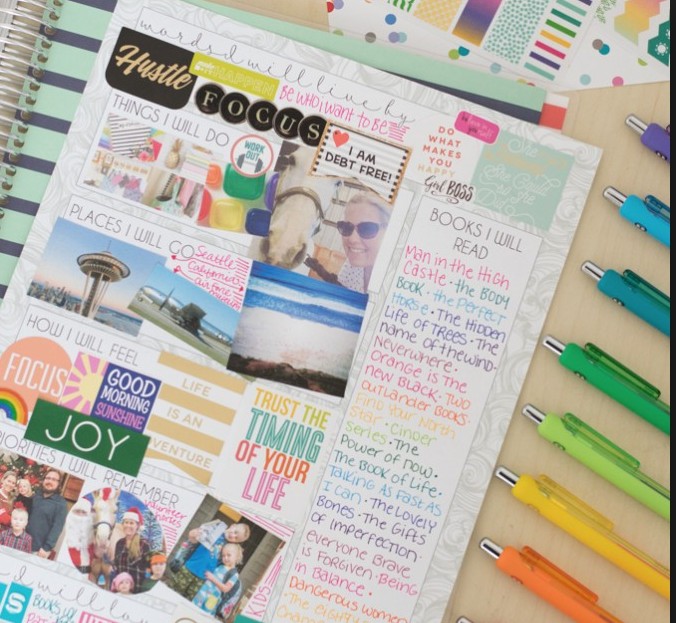 words I will live by
Hustle
make it
HAPPEN
FOCUS
Be who I want to Be
DO
WHAT
MAKES
YOU
HAPPY
Girl BOSS
THINGS I WILL DO
WORK
OUT
I AM
DEBT FREE!
PLACES I WILL GO
Seattle
California
HOW I WILL FEEL
FOCUS
GOOD
MORNING
SUNSHINE
JOY
LIFE
IS AN
VENTURE
TRUST THE
TIMING
OF YOUR
LIFE
PRIORITIES I WILL REMEMBER
KIDS
BOOKS I WILL
READ
Man in the High
Castle · the BODY
BOOK · the Perfect
Horse · The Hidden
Life of Trees · The
name of the wind ·
Neverwhere ·
Orange is The
new Black · Two
outlander Books
Find Your North
Star · Cinder
Series · The
Power of now ·
The Book of Life ·
Talking As Fast As
I Can · The Lovely
Bones · The Gifts
of Imperfection ·
everyone Brave
is Forgiven · Being
in Balance ·
Dangerous women